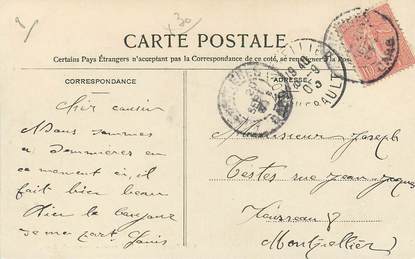 x30
CARTE POSTALE
Certains Pays Étrangers n'acceptant pas la Correspondance de ce coté, se renseigner à la Poste
CORRESPONDANCE
ADRESSE
Cher cousin
Nous sommes
a Sommières en
ce moment ci, il
fait bien beau
Bien le bonjour
de ma part Louis
Monsieur Joseph
Testes rue Jean Jacques
Rousseau 8
Montpellier
HERAULT